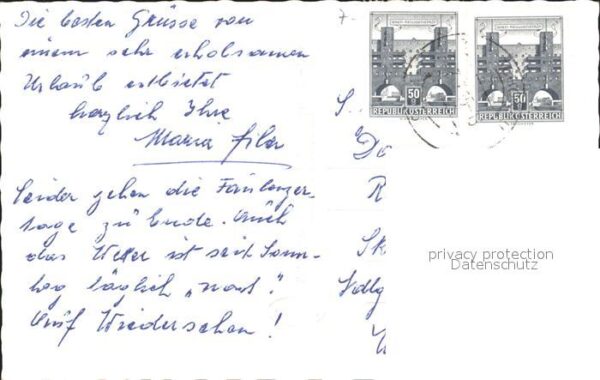 Die besten Grüsse von
einem sehr erholsamen
Urlaub entbietet
herzlich Ihre
Maria
Leider gehen die Faulenzer-
tage zu Ende. Auch
das Wetter ist seit Sonn-
tag täglich „nass".
Auf Wiedersehen!
7.
S.
Do
R
Sk
50
REPUBLIK ÖSTERREICH
50
REPUBLIK ÖSTERREICH
privacy protection
Datenschutz